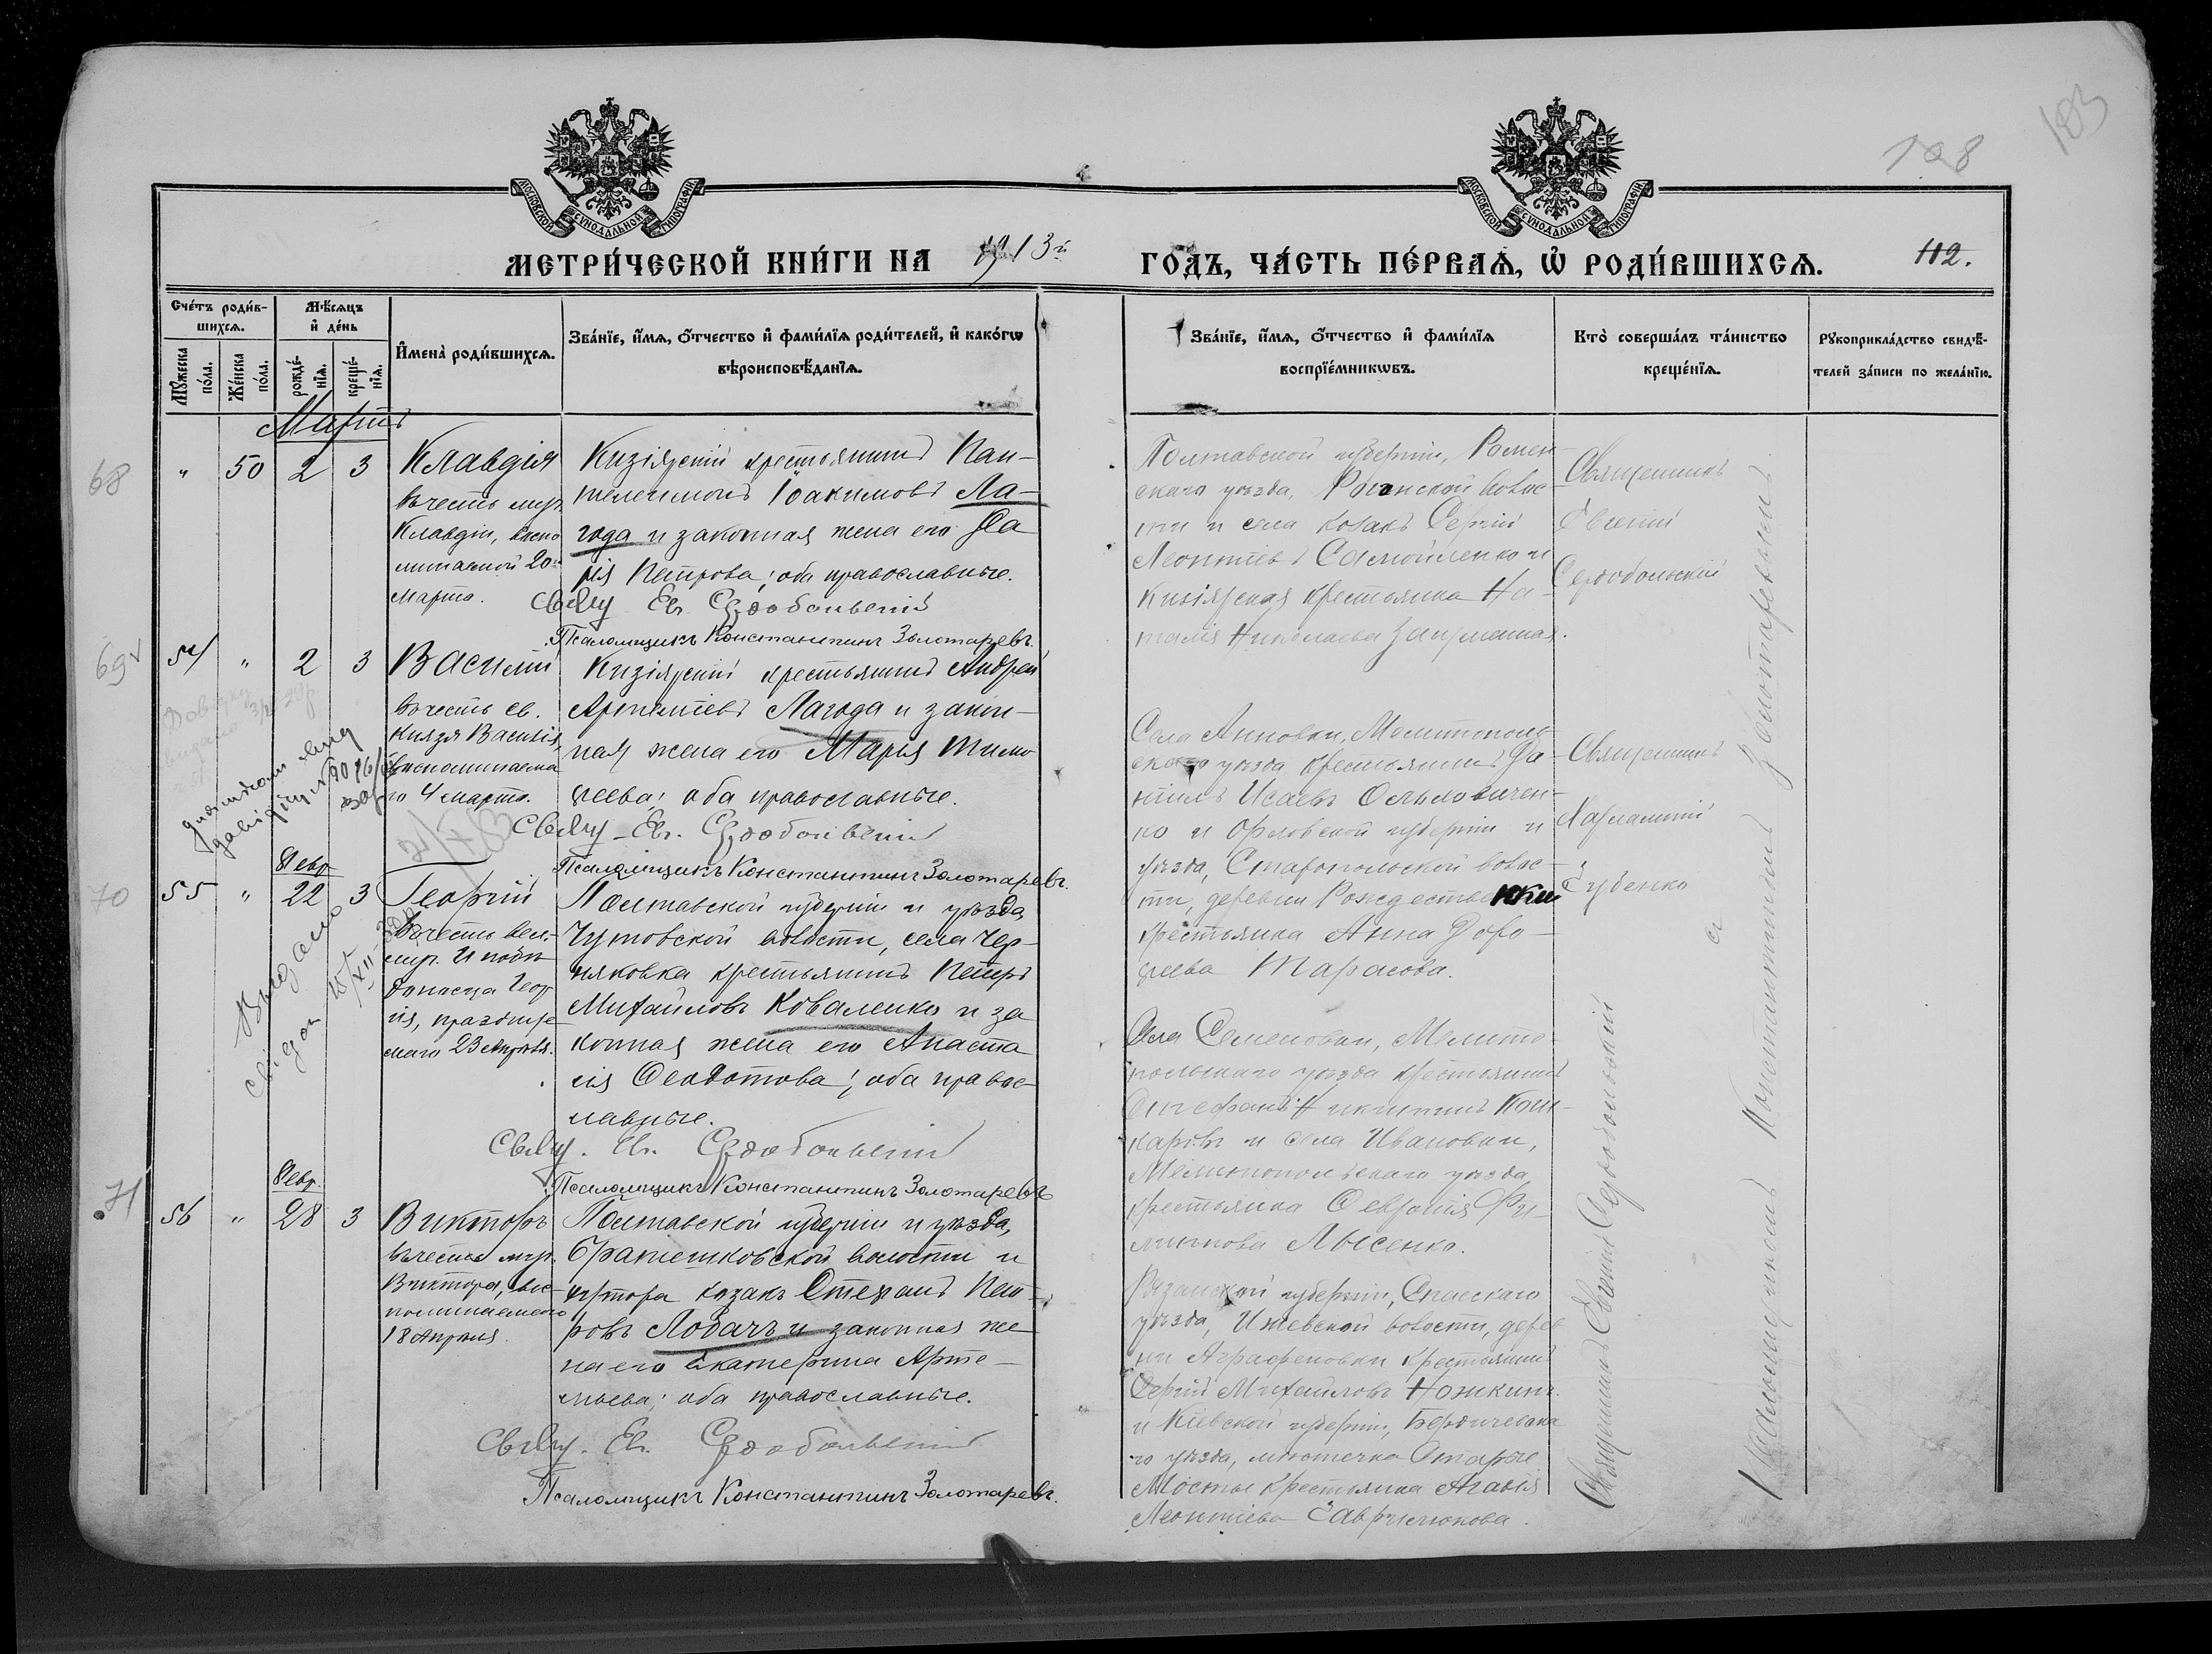 103
108
МОСКОВСКОЙ СѴНОДАЛЬНОЙ ТИПОГРАФІИ
МОСКОВСКОЙ СѴНОДАЛЬНОЙ ТИПОГРАФІИ
МЕТРИ́ЧЕСКОЙ КНИ́ГИ НА 1913й ГО́ДЪ, ЧА́СТЬ ПЕ́РВАѦ, Ѡ҆ РОДИ́ВШИХСѦ.
112.
Сче́тъ роди́в-
шихсѧ.
Мꙋ́жеска
по́ла.
Же́нска
по́ла.
Мѣ́сѧцъ
и҆ де́нь
рожде́-
нїѧ.
креще́-
нїѧ.
И҆мена̀ роди́вшихсѧ.
Зва́нїе, и҆́мѧ, ѻ҆́тчество и҆ фами́лїѧ роди́телей, и҆ како́гѡ
вѣроисповѣ́данїѧ.
Зва́нїе, и҆́мѧ, ѻ҆́тчество и҆ фами́лїѧ
воспрїе́мникѡвъ.
Кто̀ соверша́лъ та́инство
креще́нїѧ.
Рꙋкоприкла́дство свидѣ́-
телей за́писи по жела́нїю.
Мартъ
68
" 50 2 3
Клавдія
въ честь муч.
Клавдіи, воспо
минаемой 20го
Марта.
Кизіярскій крестьянинъ Пан-
телеимонъ Іоакимовъ Ла-
года и законная жена его Да
рія Петрова; оба православные.
Свящ. Ев. Сердобольскій
Псаломщикъ Константинъ Золотаревъ.
Полтавской губерніи, Ромен-
скаго уѣзда, волос-
ти и села козакъ Сергій
Леонтіевъ Самойленко и
Кизіярская крестьянка На-
талія Николаева
Священникъ
Евгеній
Сердобольскій
69
54 " 2 3
Василій
въ честь св.
Князя Василія,
воспоминаема
го 4 марта.
Кизіярскій крестьянинъ Андрей
Лагода и закон-
ная жена его Марія Тимо
ѳеева; оба православные.
Свящ. Ев. Сердобольскій
Псаломщикъ Константинъ Золотаревъ.
Села Анновки, Мелитополь
скаго уѣзда крестьянинъ Да-
ніилъ Исаевъ
ко и Орловской губерніи и
уѣзда, волос-
ти, деревни
крестьянка Анна Доро-
ѳеева Тарасова.
Священникъ
Харлампій
Губенко
70
Февр.
55 " 22 3
Георгій
въ честь вел.-
муч. и побѣ
доносца Геор
гія, празднуе
маго 23 Апрѣля.
Полтавской губерніи и уѣзда,
Чутовской волости, села Чер-
няковка крестьянинъ Петръ
Михайловъ Коваленко и за
конная жена его Анаста
сія Ѳеодотова; оба правос-
лавные.
Свящ. Ев. Сердобольскій
Псаломщикъ Константинъ Золотаревъ
Села Семеновки, Мелито-
польскаго уѣзда крестьянинъ
Никитинъ Кош-
каровъ и села Ивановки,
Мелитопольскаго уѣзда
крестьянка Ѳевронія Фи-
липпова Лысенко.
71
Февр.
56 " 28 3
Викторъ
въ честь муч.
Виктора, вос-
поминаемаго
18 Апрѣля.
Полтавской губерніи и уѣзда,
Братешковской волости и
хутора козакъ Стефанъ Пет-
ровъ Лобачъ и законная же
на его Екатерина Арте-
мьева; оба православные.
Свящ. Ев. Сердобольскій
Псаломщикъ Константинъ Золотаревъ.
Рязанской губерніи, Спасскаго
уѣзда, Ижевской волости, дерев
ни Аграфеновки крестьянинъ
Сергій Михайловъ Ножкинъ
и Кіевской губерніи, Бердичевска
го уѣзда, мѣстечка Старые
Мосты крестьянка Агаѳія
Леонтіева
Священникъ Евгеній Сердобольскій
съ
Псаломщикомъ Константиномъ Золотаревымъ.